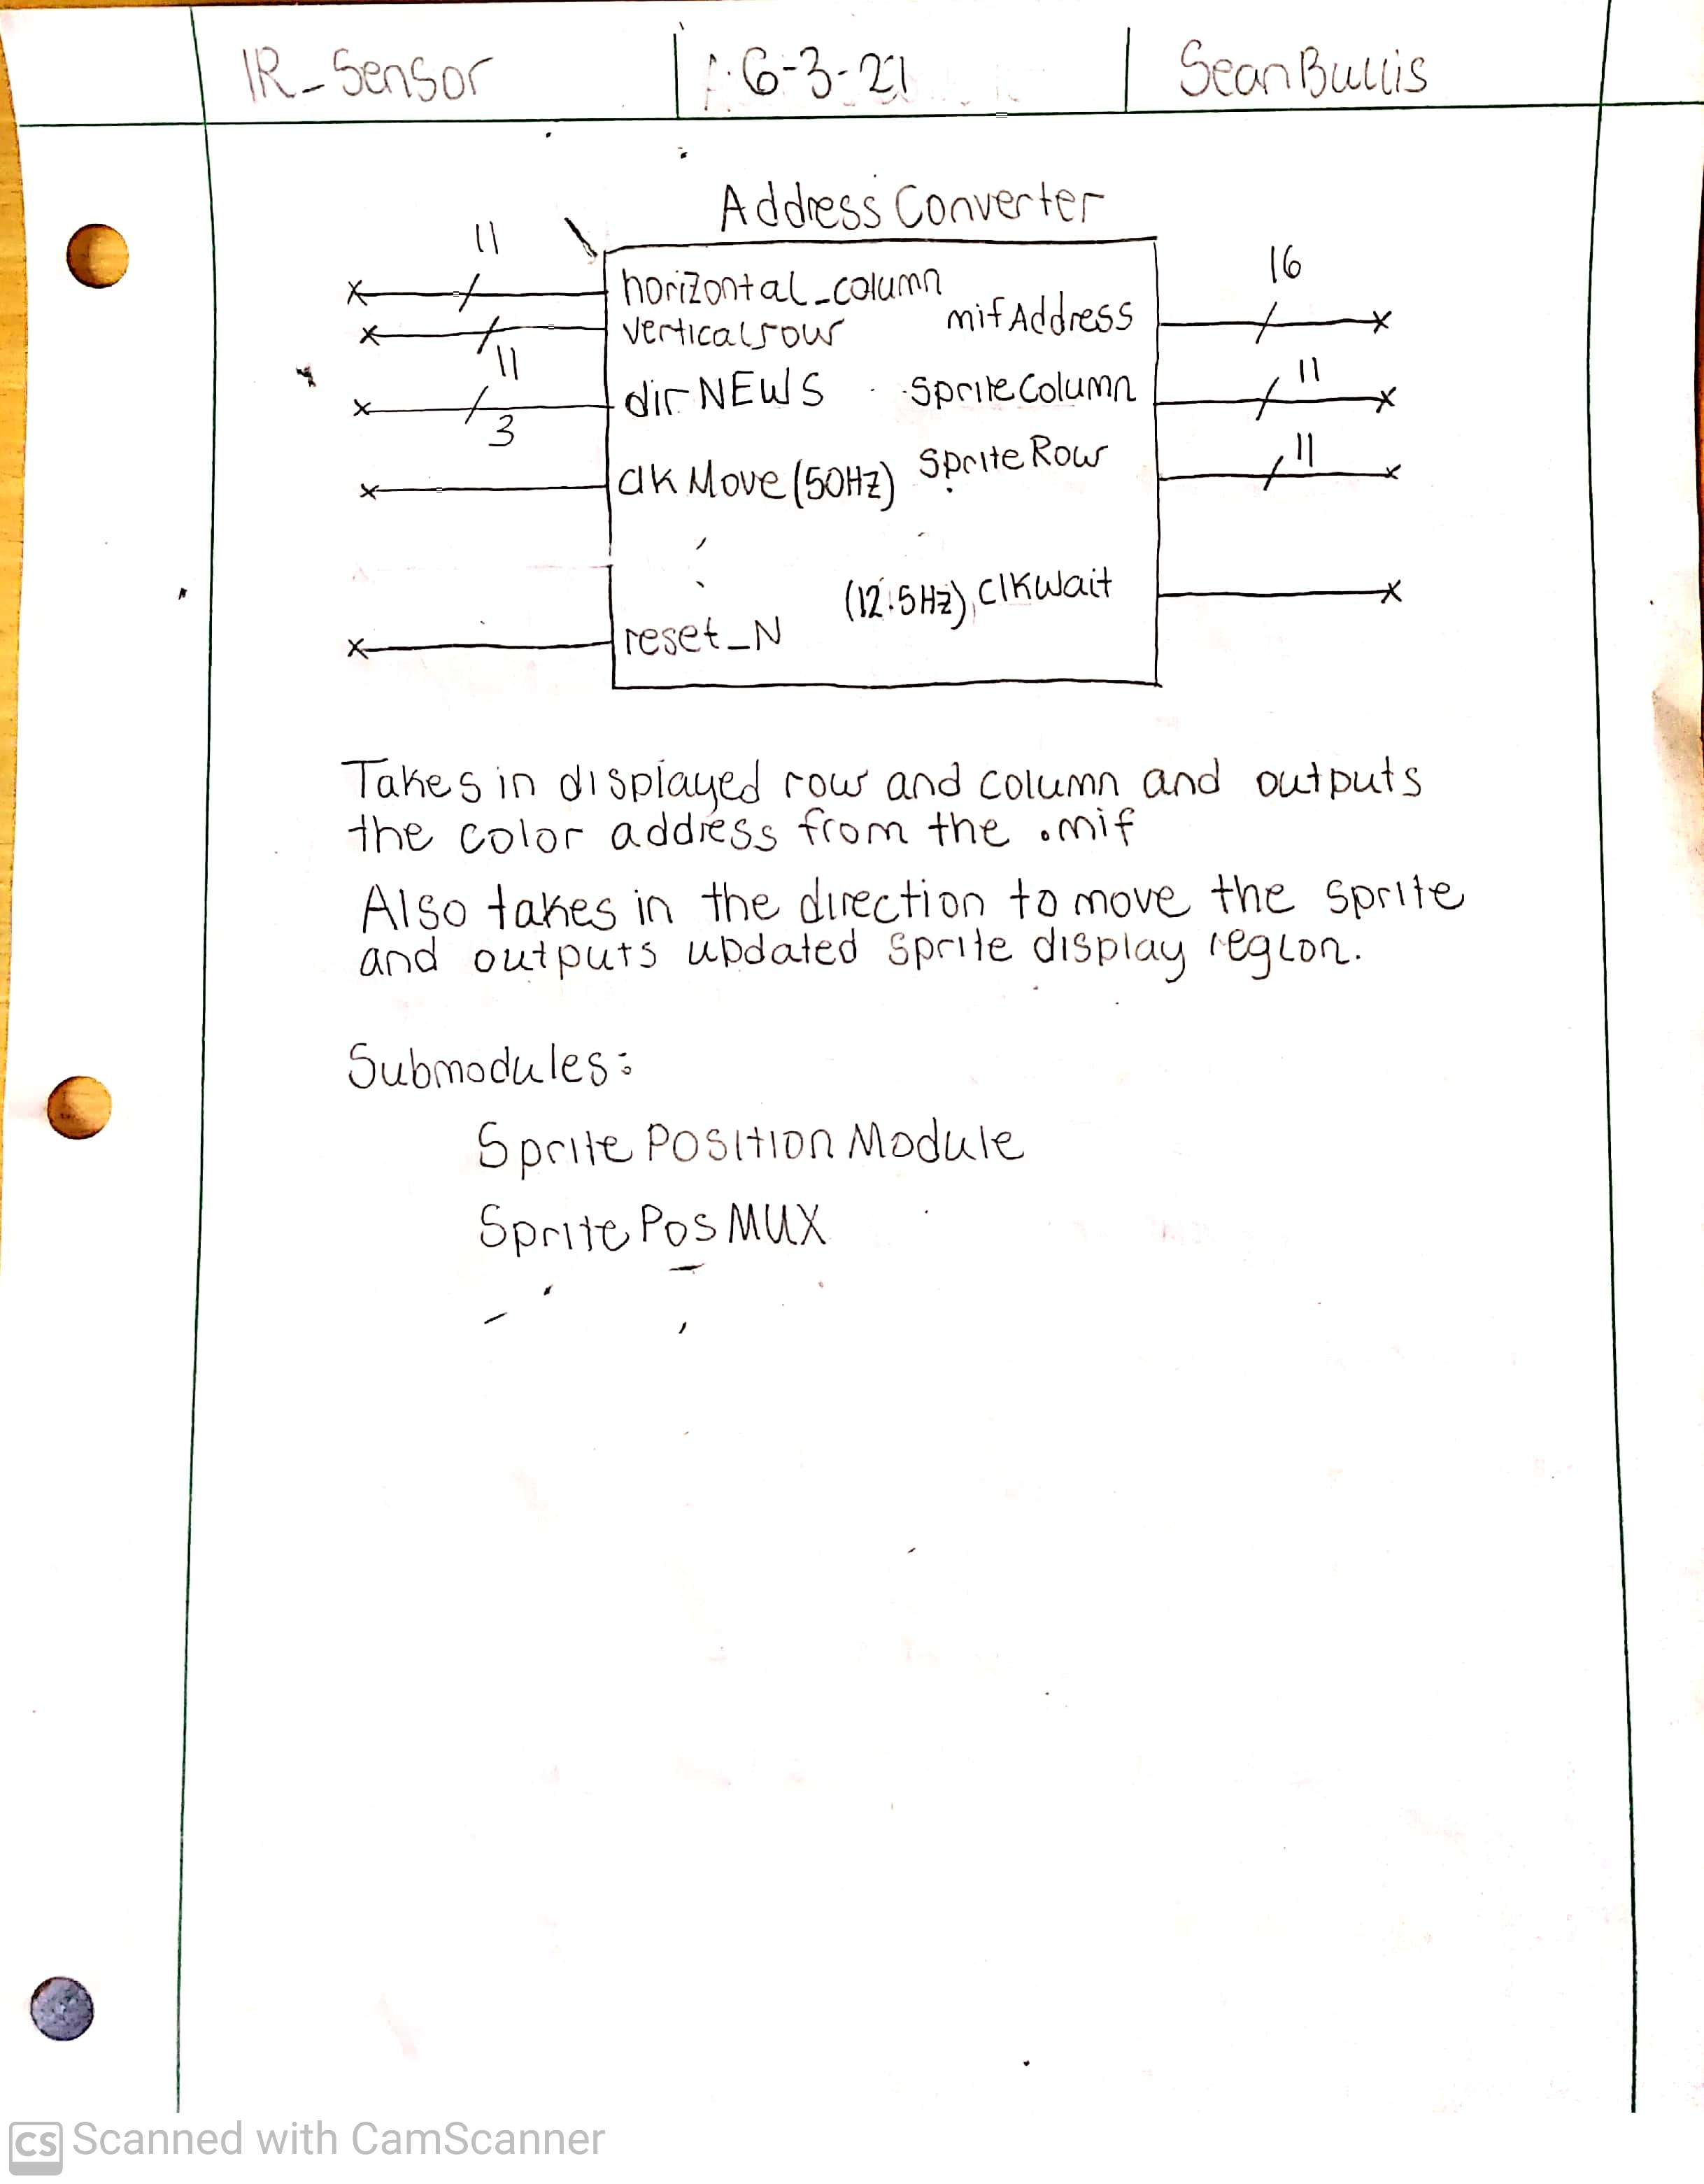 IR_Sensor 6-3-21 Sean Bullis
Address Converter
11
horizontal_column
16
mifAddress
vertical_row
11
dirNEWS
SpriteColumn
11
3
clkMove (50Hz)
SpriteRow
11
(12.5Hz) clkWait
reset_N
Takes in displayed row and column and outputs
the color address from the .mif
Also takes in the direction to move the sprite
and outputs updated sprite display region.
Submodules:
Sprite Position Module
Sprite Pos MUX
CS Scanned with CamScanner